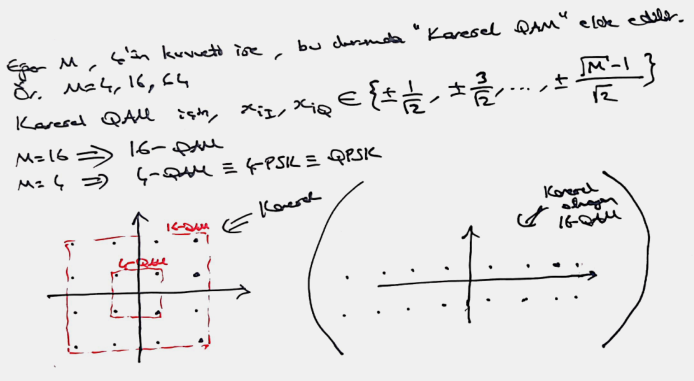 Eğer M, 4'ün kuvveti ise, bu durumda "Karesel QAM" elde edilir.
Ör. M=4, 16, 64
Karesel QAM için, x_{iI}, x_{iQ} ∈ {± 1/√2, ± 3/√2, ..., ± (√M - 1)/√2}
M=16 ⟹ 16-QAM
M=4 ⟹ 4-QAM ≡ 4-PSK ≡ QPSK
Karesel
16-QAM
4-QAM
Karesel
olmayan
16-QAM